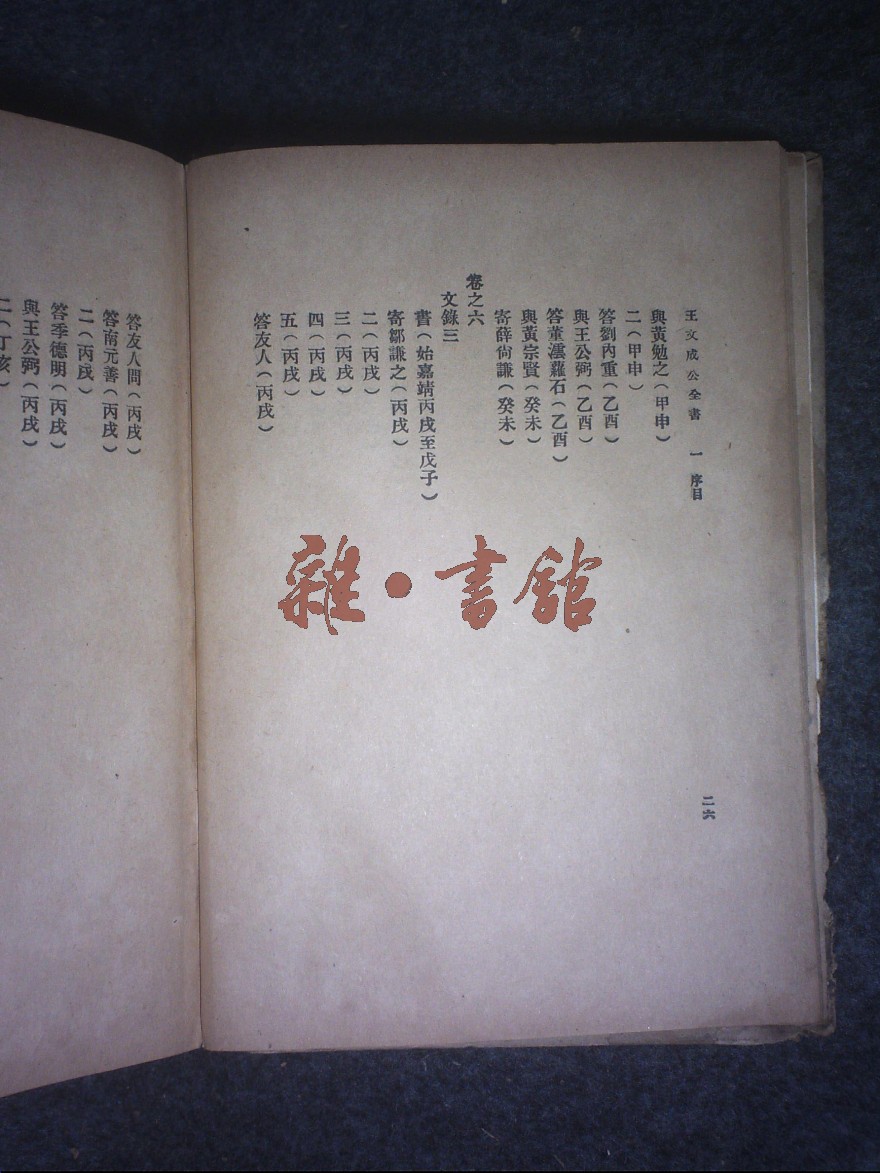 王文成公全書　一　序目
與黃勉之（甲申）
二（甲申）
答劉內重（乙酉）
與王公弼（乙酉）
答董澐蘿石（乙酉）
與黃宗賢（癸未）
寄薛尚謙（癸未）
卷之六
文錄三
書（始嘉靖丙戌至戊子）
寄鄒謙之（丙戌）
二（丙戌）
三（丙戌）
四（丙戌）
五（丙戌）
答友人（丙戌）
二六
答友人問（丙戌）
答南元善（丙戌）
二（丙戌）
答季德明（丙戌）
與王公弼（丙戌）
二（丁亥）
雜·書館